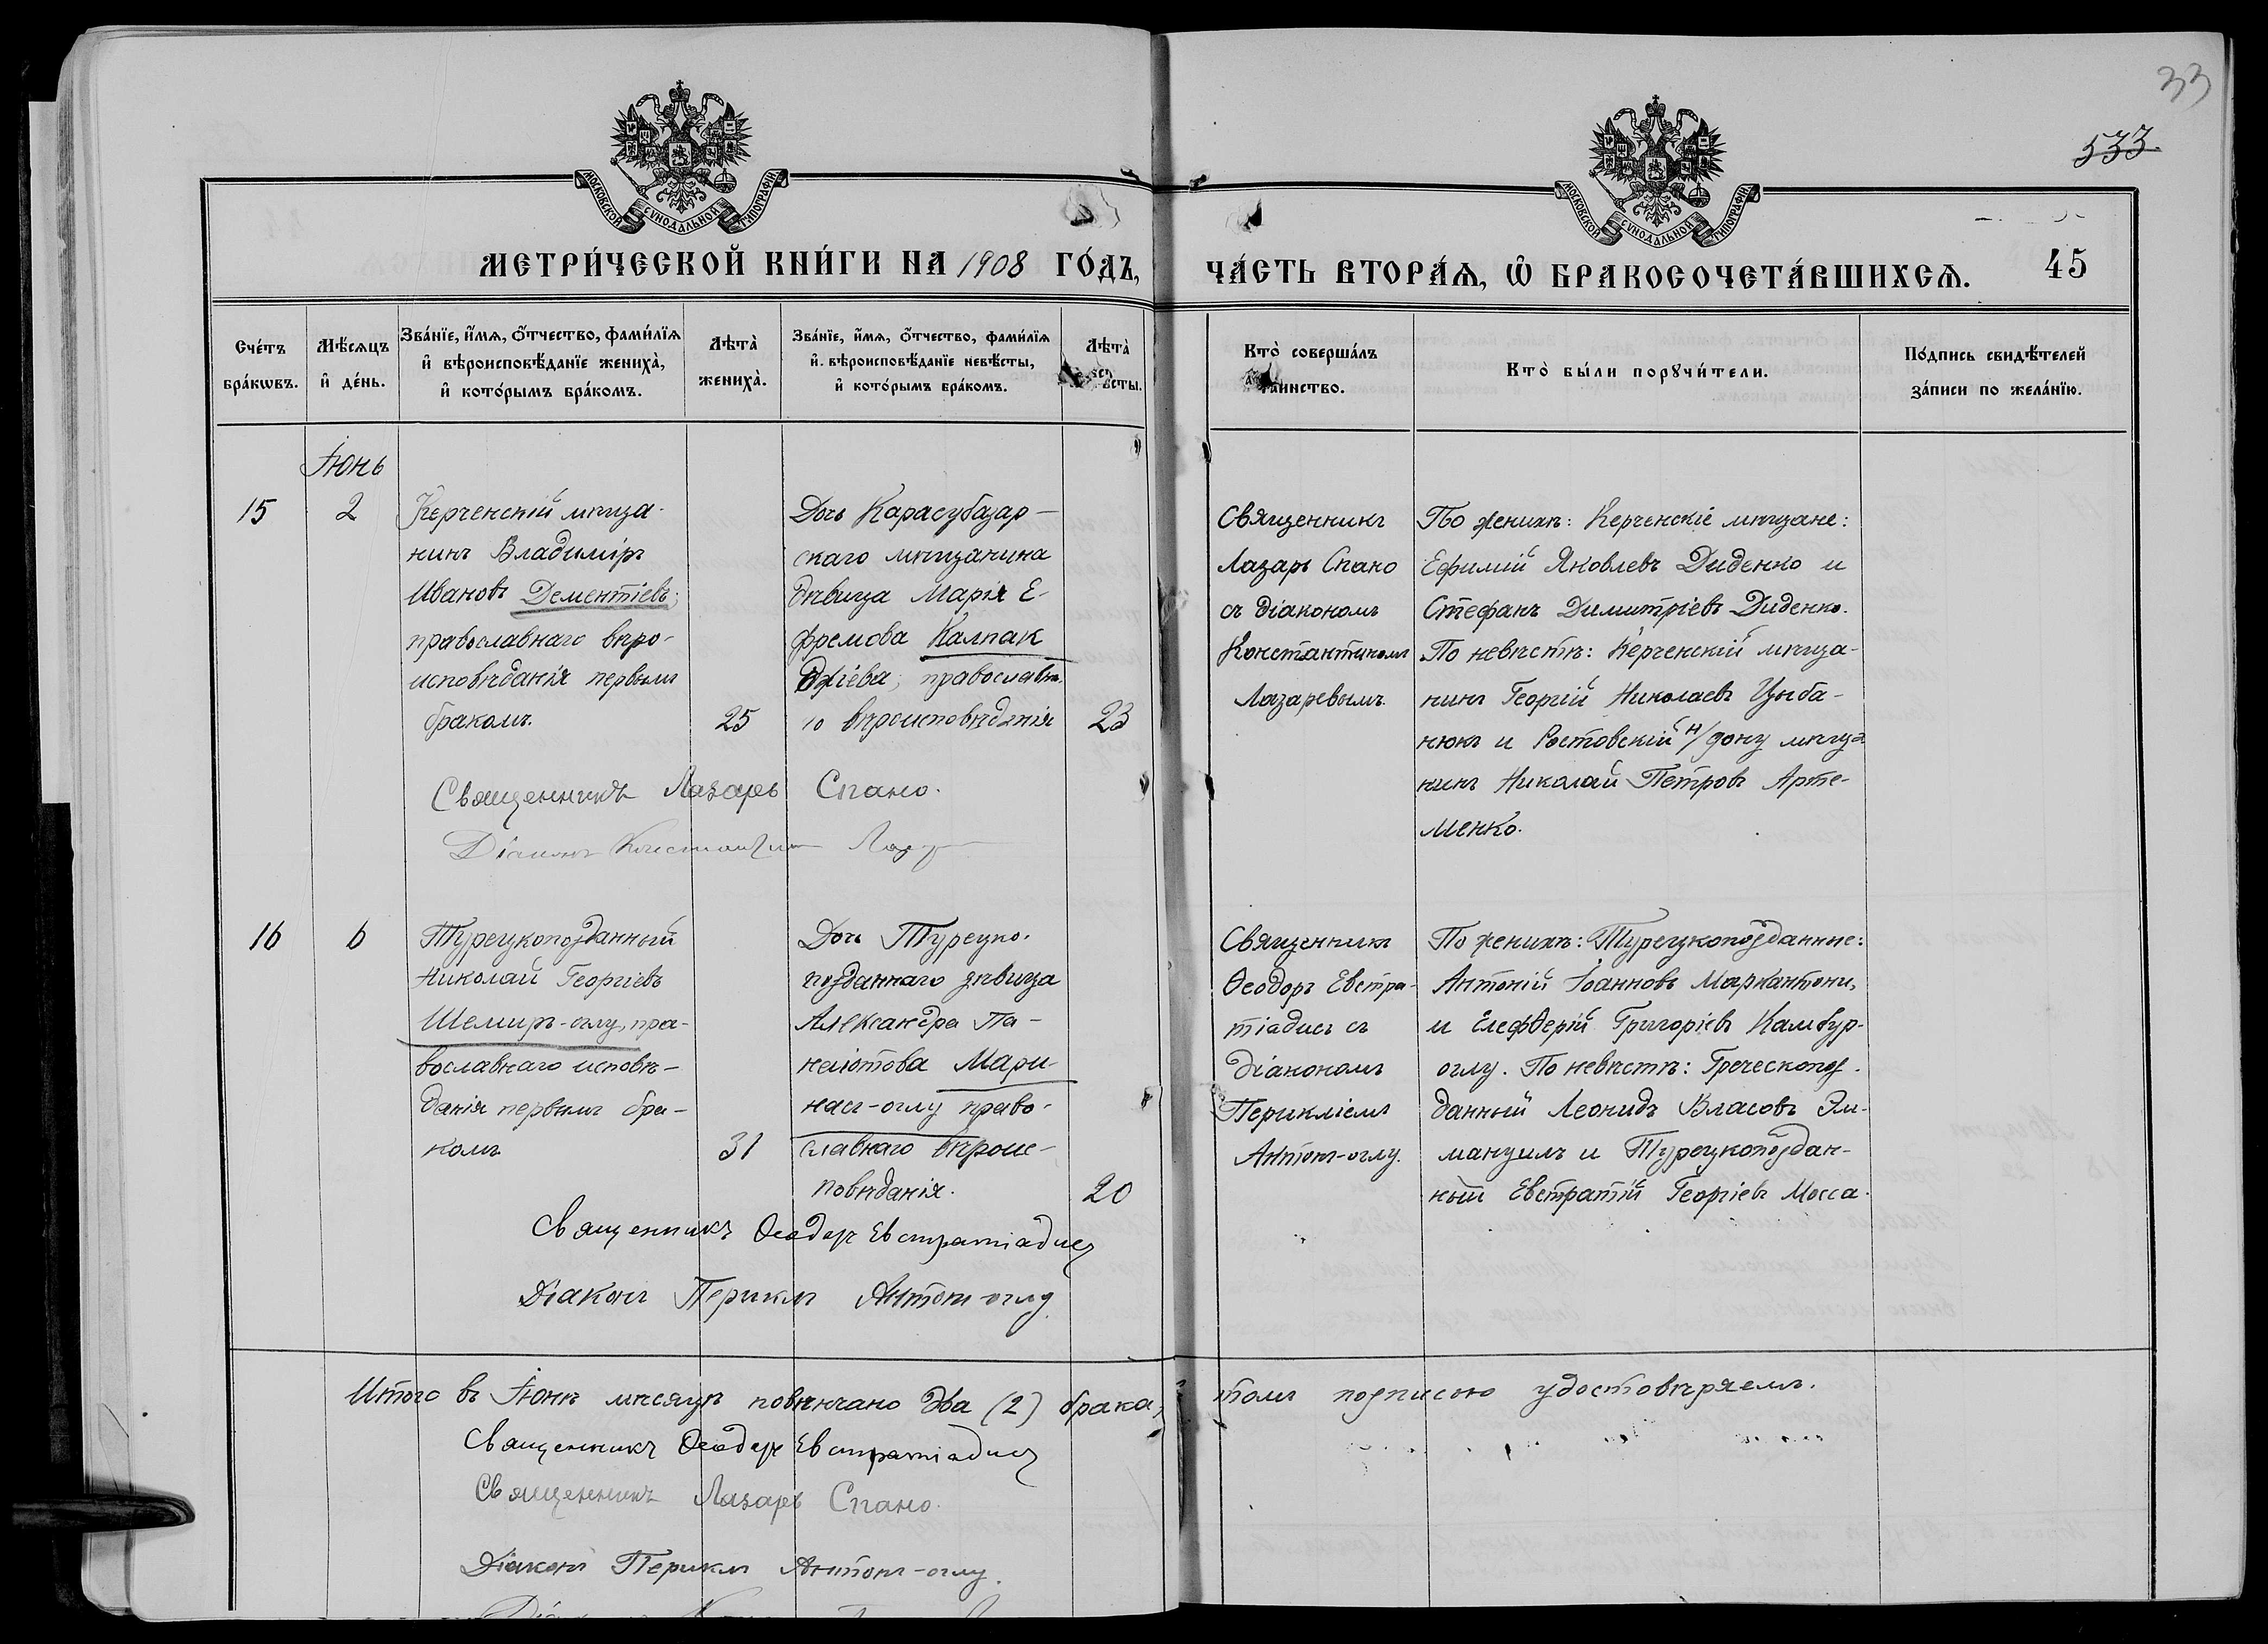 33
533.
МОСКОВСКОЙ СѴНОДАЛЬНОЙ ТИПОГРАФІИ
МОСКОВСКОЙ СѴНОДАЛЬНОЙ ТИПОГРАФІИ
МЕТРИ́ЧЕСКОЙ КНИ́ГИ НА 1908 ГО́ДЪ,
ЧА́СТЬ ВТОРА́Ѧ, Ѽ БРАКОСОЧЕТА́ВШИХСѦ.
45
Сче́тъ
бра́кѡвъ.
Мѣ́сяцъ
и҆ де́нь.
Зва́нїе, и҆́мѧ, ѻ҆́тчество, фами́лїѧ
и҆ вѣроисповѣ́данїе жениха̀,
и҆ кото́рымъ бра́комъ.
Лѣта̀
жениха̀.
Зва́нїе, и҆́мѧ, ѻ҆́тчество, фами́лїѧ
и҆ вѣроисповѣ́данїе невѣ́сты,
и҆ кото́рымъ бра́комъ.
Лѣта̀
Кто̀ соверша́лъ
таинство.
Кто̀ бы́ли порꙋчи́тели.
По́дпись свидѣ́телей
за́писи по жела́нїю.
Іюнь
15
2
Керченскій мѣща-
нинъ Владиміръ
Ивановъ Дементіевъ;
православнаго вѣро-
исповѣданія первымъ
бракомъ.
25
Дочь Карасубазар-
скаго мѣщанина
дѣвица Марія Е-
фремова Калпак
джіева; православна-
го вѣроисповѣданія
23
Священникъ
Лазарь Спано
съ діакономъ
Константиномъ
Лазаревымъ.
По женихѣ: Керченскіе мѣщане:
Ефимій Яковлевъ Диденко и
Стефанъ Димитріевъ Диденко.
По невѣстѣ: Керченскій мѣща-
нинъ Георгій Николаевъ Цыба-
нюкъ и Ростовскій н/дону мѣща
нинъ Николай Петровъ Арте-
менко.
Священникъ Лазарь Спано.
Діаконъ Константинъ
16
6
Турецкоподданный
Николай Георгіевъ
Шемиръ-оглу, пра-
вославнаго исповѣ-
данія первымъ бра-
комъ
31
Дочь Турецко-
подданнаго дѣвица
Александра Па-
наіотова Мари-
насъ-оглу право-
славнаго вѣроис-
повѣданія.
20
Священникъ
Ѳеодоръ Евстра-
тіадисъ съ
діакономъ
Перикліемъ
Антонъ-оглу.
По женихѣ: Турецкоподданные:
Антоній Іоанновъ Маркантони,
и Елефѳерій Григоріевъ Камбур-
оглу. По невѣстѣ: Греческопод-
данный Леонидъ Власовъ Эм-
мануилъ и Турецкоподдан-
ный Евстратій Георгіевъ Мосса.
Священникъ Ѳеодоръ Евстратіадисъ
Діаконъ Периклъ Антонъ-оглу.
Итого въ Іюнѣ мѣсяцѣ повѣнчано два (2) брака,
томъ подписою удостовѣряемъ.
Священникъ Ѳеодоръ Евстратіадисъ
Священникъ Лазарь Спано.
Діаконъ Периклъ Антонъ-оглу.